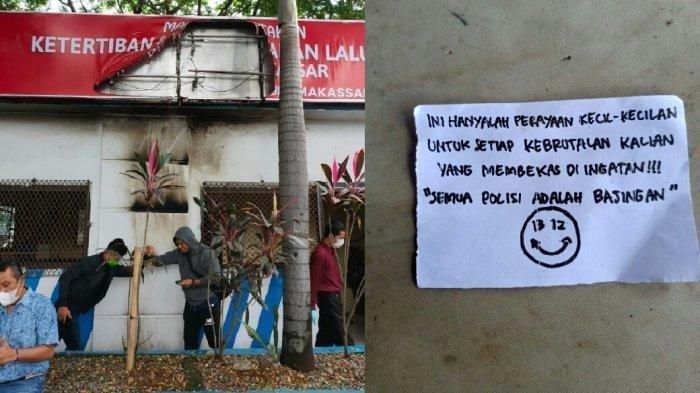 KETERTIBAN
AN LALU
MAKASSAR
INI HANYALAH PERAYAAN KECIL-KECILAN
UNTUK SETIAP KEBRUTALAN KALIAN
YANG MEMBEKAS DI INGATAN!!!
"SEMUA POLISI ADALAH BAJINGAN"
13 12